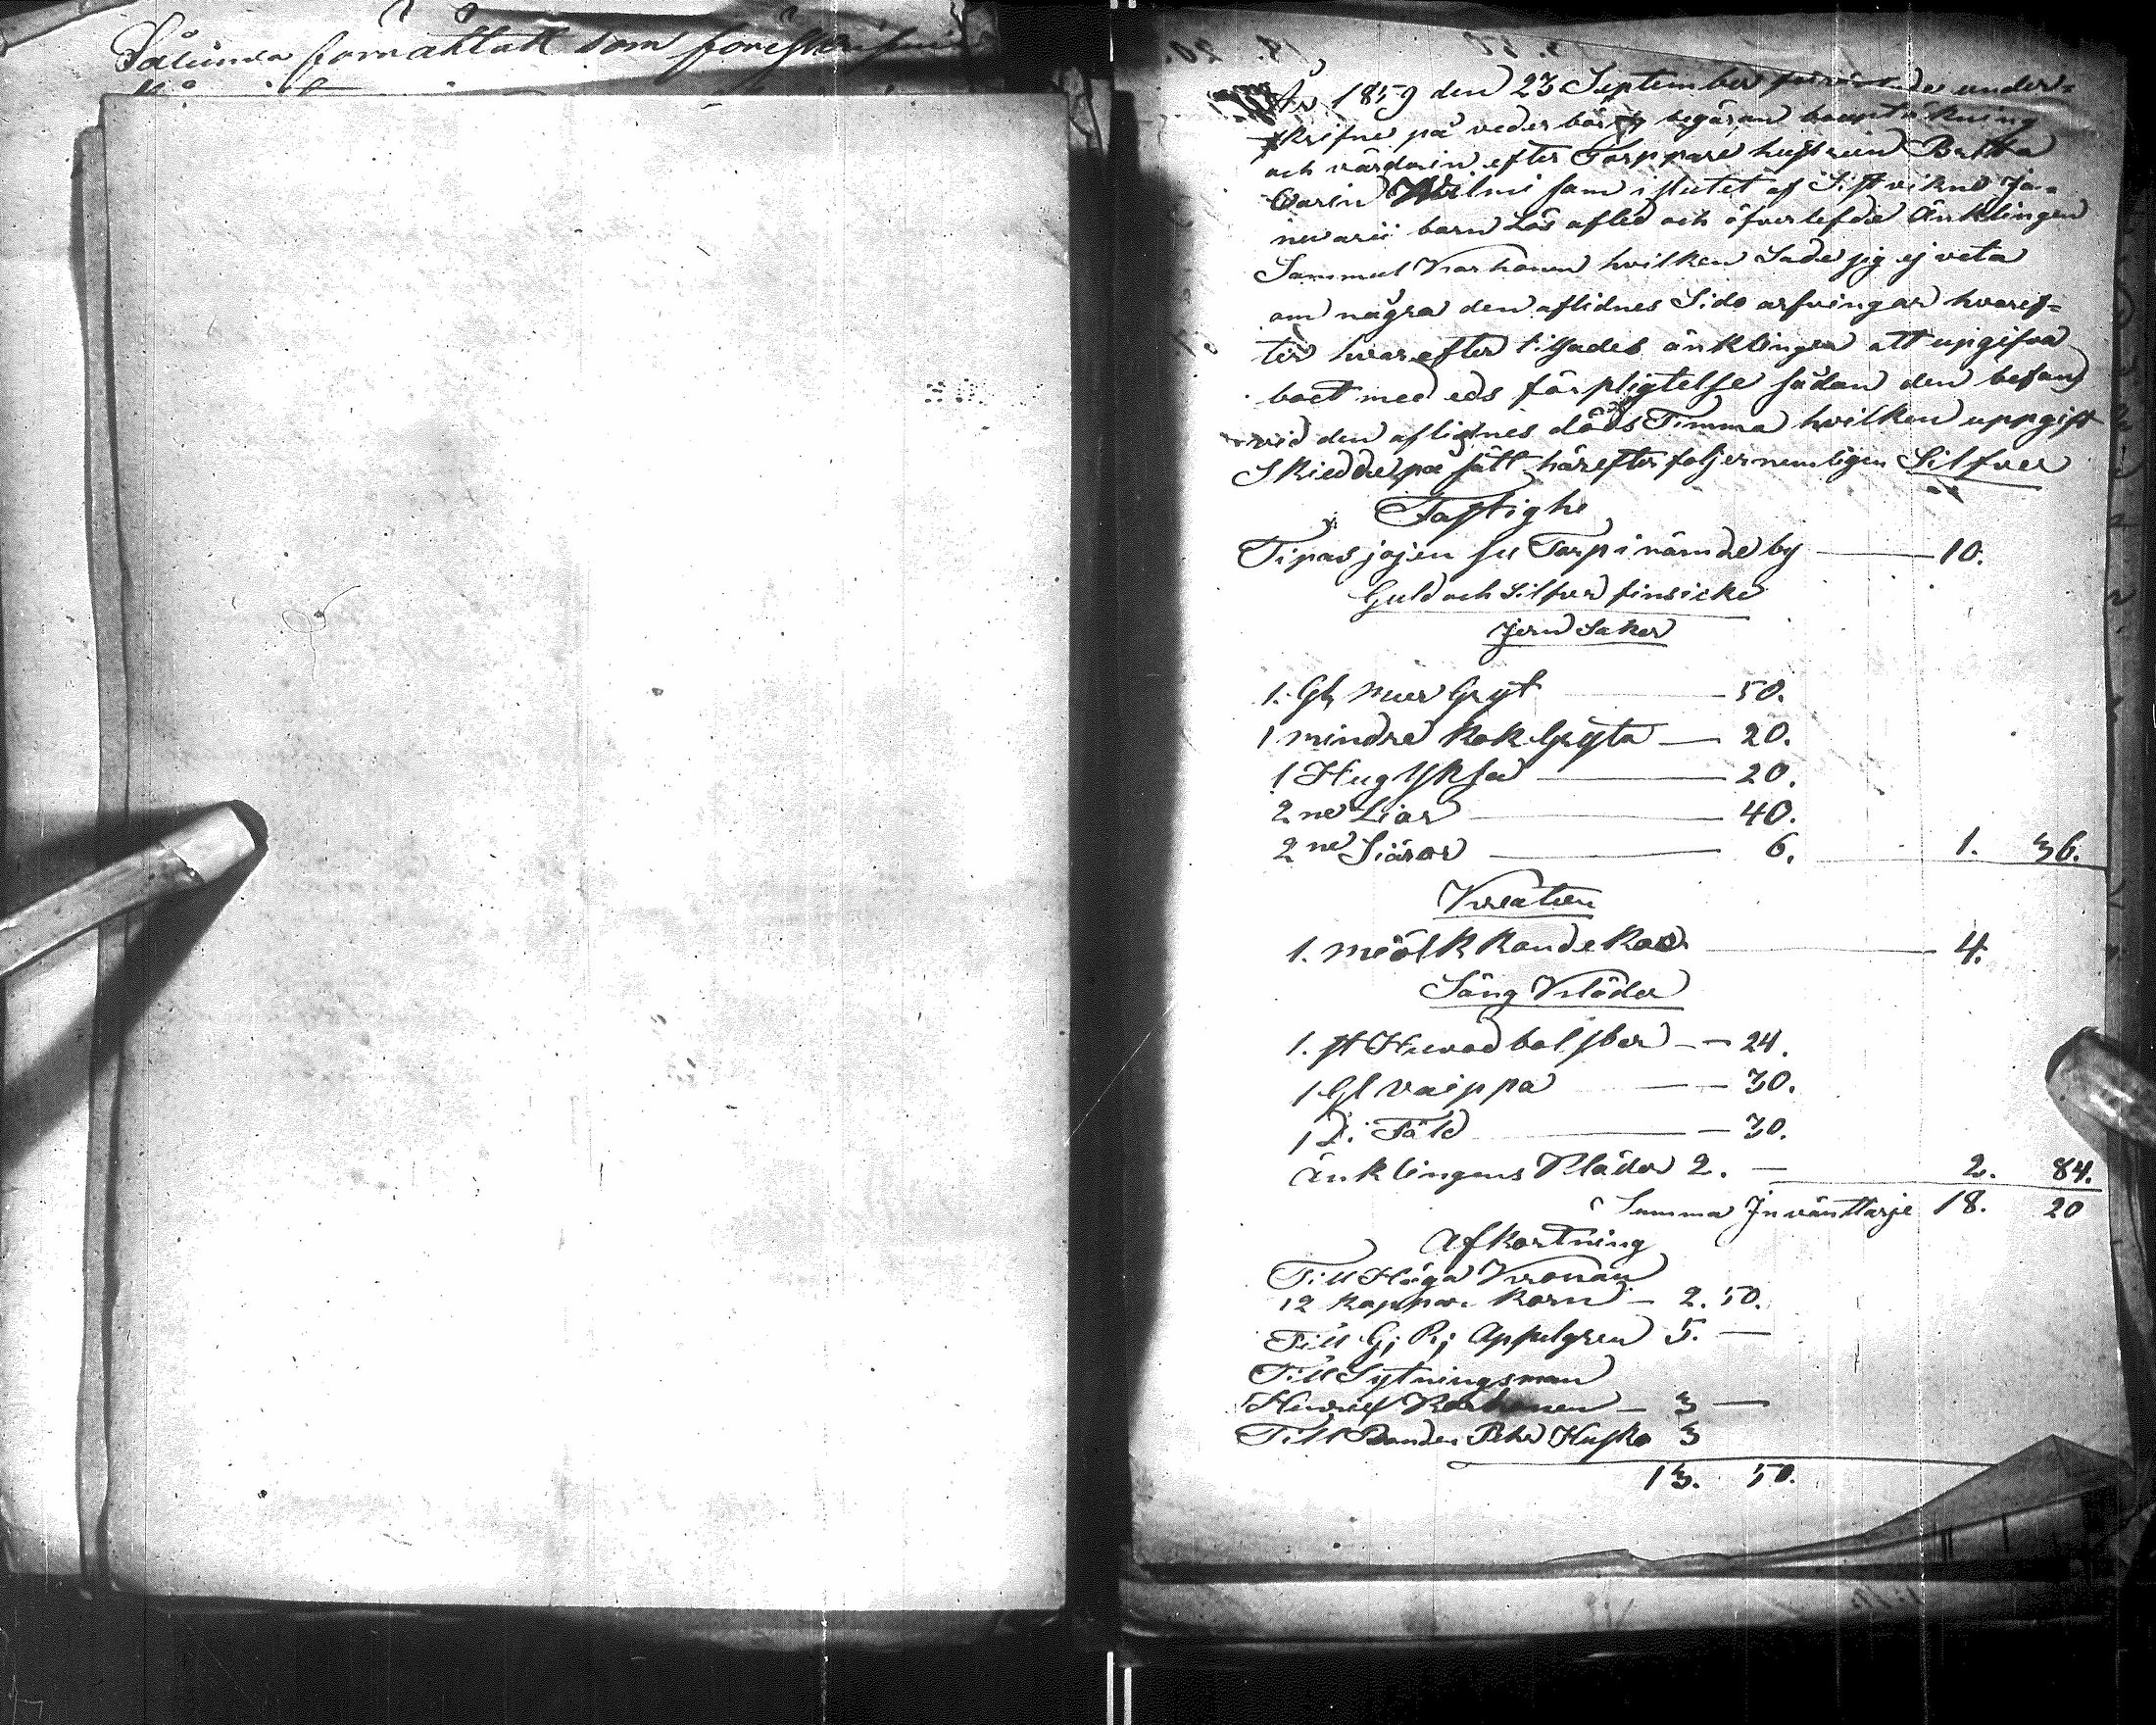 Sålunda förrättatt som föreskrifvit
År 1859 den 23 September förrättade under-
skrifne på vederbörlig begäran bouptäkning
och värderin efter Torppare hustrun Britta
Carin som i slutet af Sistvikne Ja-
nuarii barn Lös afled och öfverlefde Änklingen
Sammuel Korhonen hvilken Sade sig ej veta
om några den aflidnes Sido arfvingar hvaref-
ter hvarefter tilsades änklingen att upgifva
boet med eds förpligtelse sådan den befans
vid den aflidnes döds Timma hvilken uppgift
Skiedde på sätt härefter följer nemligen Silfver
Fastighe
Torp i nämde by 10.
Guld och Silfver finsicke
Jern Saker
1. Gl Mur Gryt 50.
1 mindre Kok Gryta 20.
1 Hug Yksa 20.
2ne Liar 40.
2ne Skäror 6. 1. 36.
Kreatur
1. miölkkande Koo 4.
Säng Kläder
1. st Huvod bolster 24.
1 Gl vaippa 30.
1 D: Fäld 30.
Änklingens Kläder 2. — 2. 84.
Summa Jnvänttarje 18. 20
Afkortning
Till Höga Kronan
12 kappar Korn — 2. 50.
Till G; R; Appelgren 5. —
Till Sytningsman
Henrik Korhonen — 3 —
Till Bonden Petter Husko 3
13. 50.